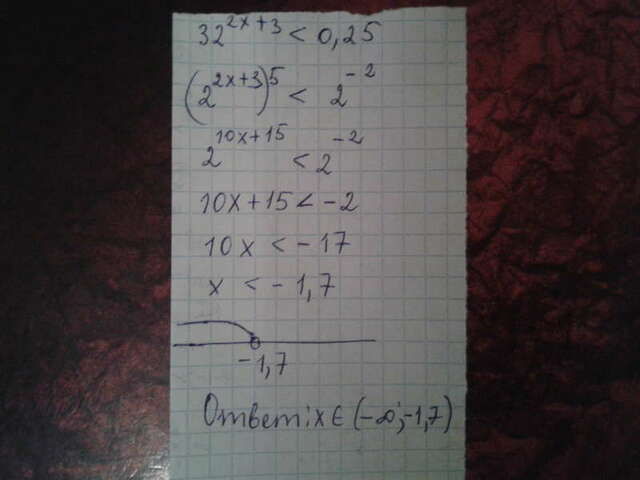 32^{2x+3} < 0,25
(2^{2x+3})^5 < 2^{-2}
2^{10x+15} < 2^{-2}
10x+15 < -2
10x < -17
x < -1,7
-1,7
Ответ: x ∈ (-∞; -1,7)